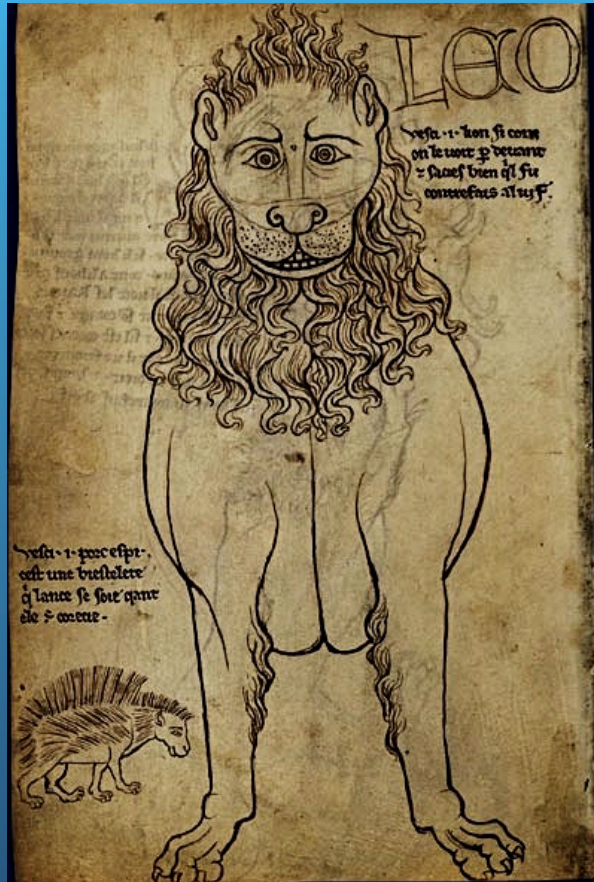 LEO
vesci · i · lion si com
on le voit p devant
⁊ sacies bien ql fu
contrefais al vif.
vesci · i · porc espi ·
cest une biestelete
q lance se soie qant
ele ÷ corecie ·